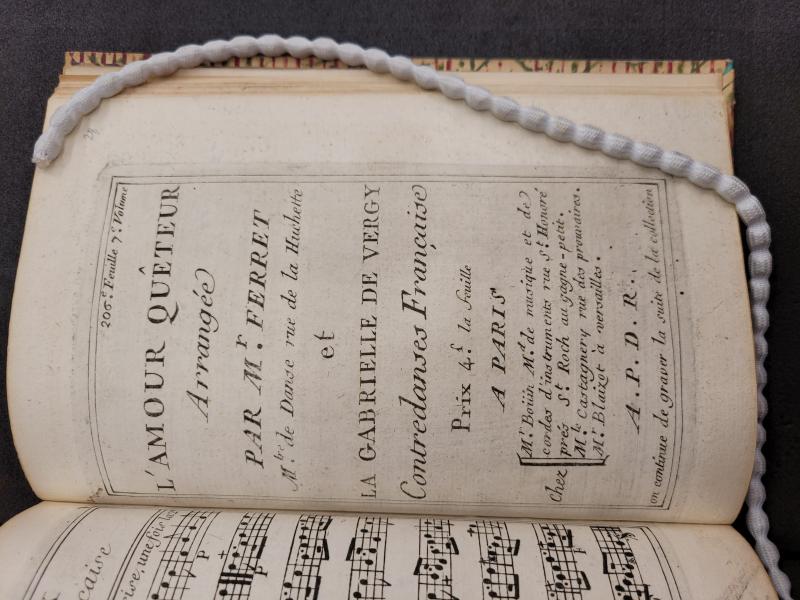 206.e Feuille 7.e Volume
L'AMOUR QUÊTEUR
Arrangée
PAR M.r FERRET
M.tre de Danse rue de la Huchette
et
LA GABRIELLE DE VERGY
Contredanses Française
Prix 4.s la feuille
A PARIS
Chez
M.r Boüin M.d de musique et de
cordes d'instruments rue S.t Honoré
prés S.t Roch au gagne-petit.
M.le Castagnery rue des prouvaires.
M.r Blaizot à versailles.
A. P. D. R.
on continue de graver la suite de la collection
caise
rise, une fois
P